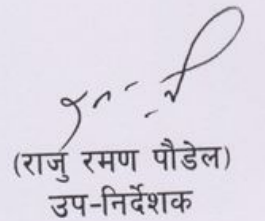 (राजु रमण पौडेल)
उप-निर्देशक